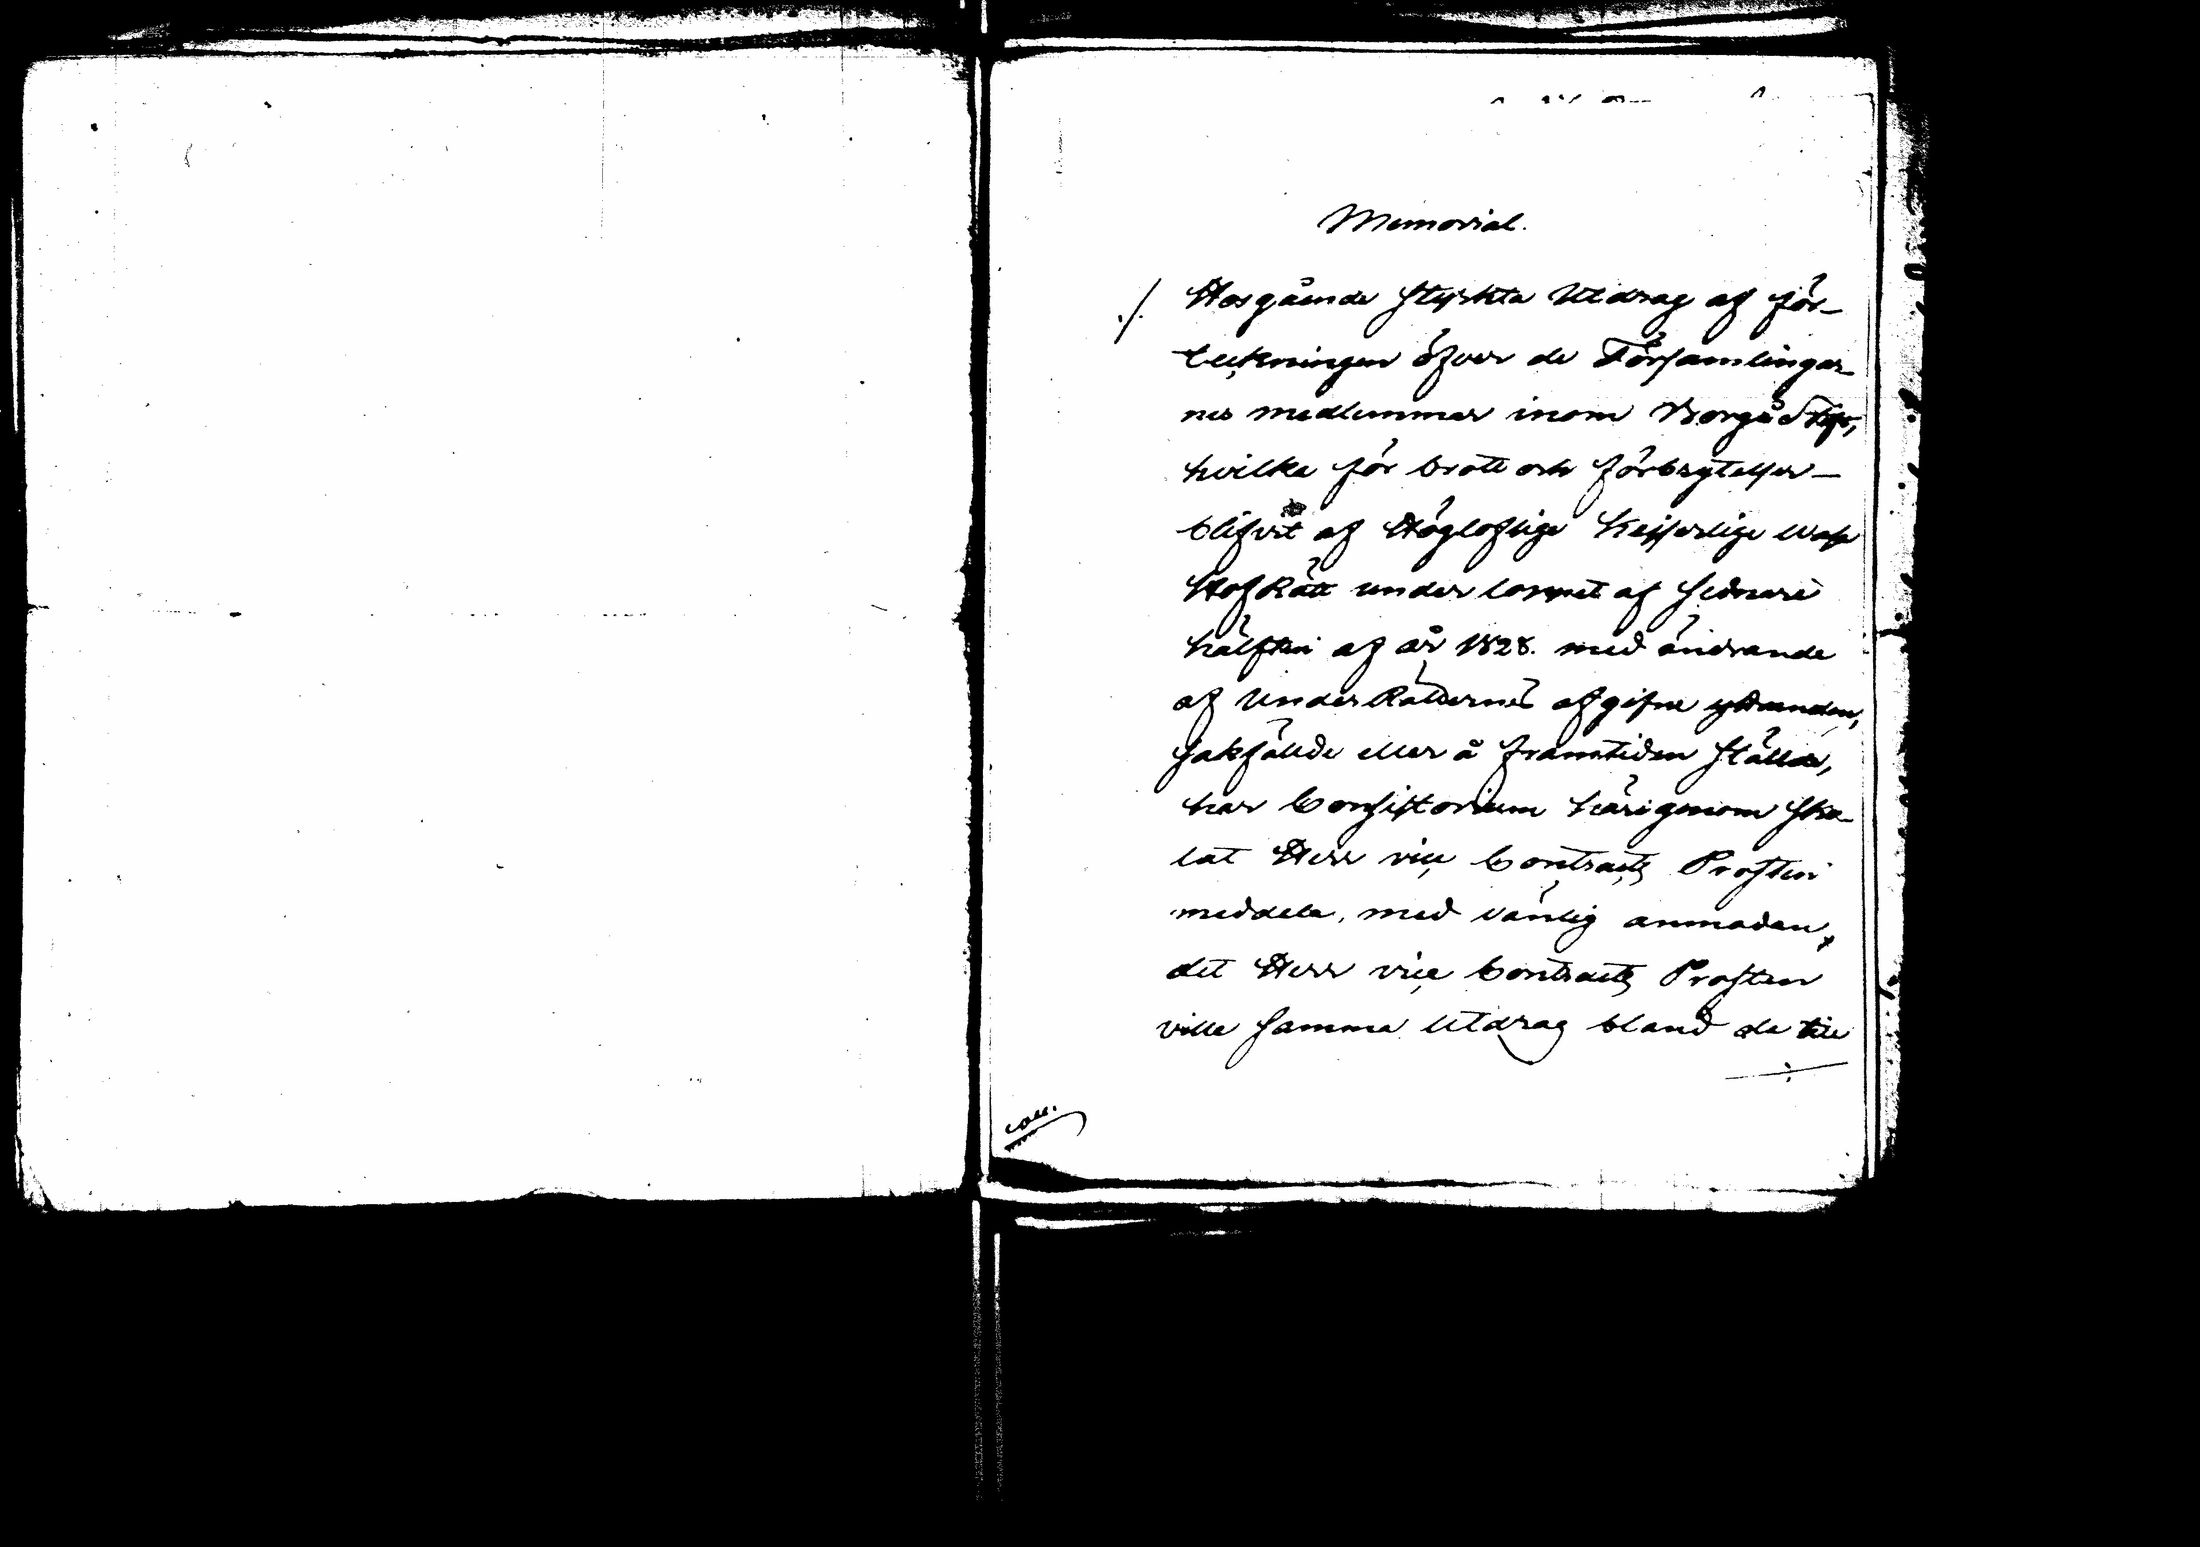 Memorial.
./. Hosgående styrkta Utdrag af för-
teckningen öfver de Församlingar-
nes medlemmar inom Borgå Stift,
hvilka för brott och förbrytelser -
blifvit af Högloflige Kejserlige Wasa
HofRätt under loppet af sednare
hälften af år 1828. med ändrande
af UnderRätternes afgifne yttranden,
sakfällde eller å framtiden ställde,
har Consistorium härigenom sko-
lat Herr vice Contracts Prosten
meddela, med vänlig anmodan,
det Herr vice Contracts Prosten
ville samma Utdrag bland de till